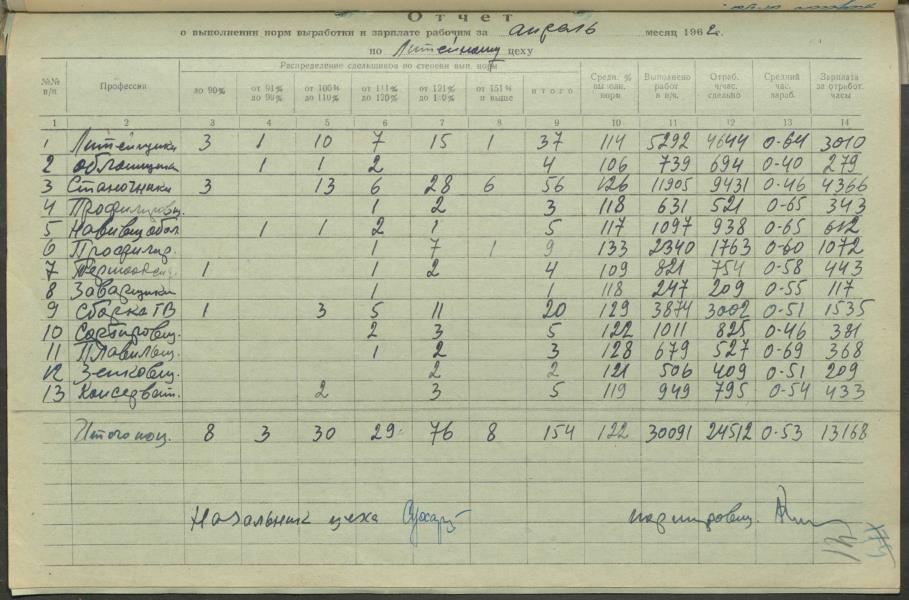 Отчет
о выполнении норм выработки и зарплате рабочим за апрель месяц 1962г.
по Литейному цеху
№№ п/п Профессия Распределение сдельщиков по степени вып. норм Средн. % выполн. норм Выполнено работ в н/ч. Отраб. ч/час. сдельно Средний час. зараб. Зарплата за отработ. часы
до 90% от 91% до 99% от 100% до 110% от 111% до 120% от 121% до 150% от 151% и выше итого
1 2 3 4 5 6 7 8 9 10 11 12 13 14
1 Литейщики 3 1 10 7 15 1 37 114 5292 4644 0-64 3010
2 обломщики 1 1 2 4 106 739 694 0-40 279
3 Станочники 3 13 6 28 6 56 126 11905 9431 0-46 4366
4 Профилировщ. 1 2 3 118 631 521 0-65 343
5 1 1 2 1 5 117 1097 938 0-65 612
6 Профилир. 1 7 1 9 133 2340 1763 0-60 1072
7 1 1 2 4 109 821 754 0-58 443
8 Заварщики 1 1 118 247 209 0-55 117
9 Сборка ГВ 1 3 5 11 20 129 3874 3002 0-51 1535
10 Сортировщ. 2 3 5 122 1011 825 0-46 381
11 Плавильщ. 1 2 3 128 679 527 0-69 368
12 Зенковщ. 2 2 121 506 409 0-51 209
13 Консерват. 2 3 5 119 949 795 0-54 433
Итого поц. 8 3 30 29 76 8 154 122 30091 24512 0-53 13168
Начальник цеха
нормировщ.